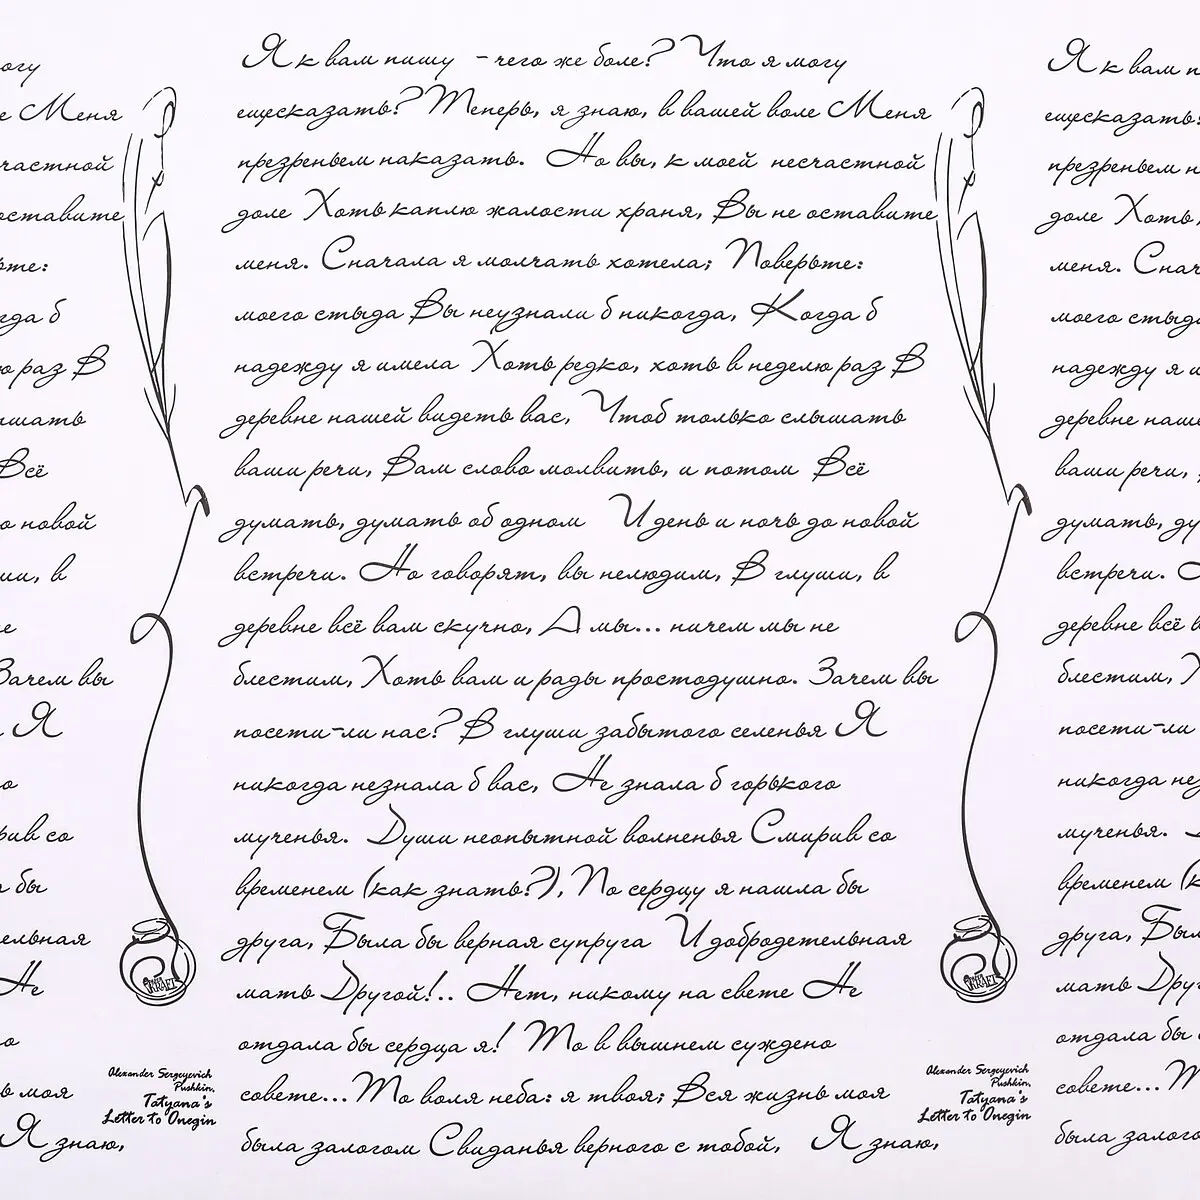 Я к вам пишу – чего же боле? Что я могу
ещесказать? Теперь, я знаю, в вашей воле Меня
презреньем наказать. Но вы, к моей несчастной
доле Хоть каплю жалости храня, Вы не оставите
меня. Сначала я молчать хотела; Поверьте:
моего стыда Вы неузнали б никогда, Когда б
надежду я имела Хоть редко, хоть в неделю раз В
деревне нашей видеть вас, Чтоб только слышать
ваши речи, Вам слово молвить, и потом Всё
думать, думать об одном И день и ночь до новой
встречи. Но говорят, вы нелюдим, В глуши, в
деревне всё вам скучно, А мы... ничем мы не
блестим, Хоть вам и рады простодушно. Зачем вы
посети-ли нас? В глуши забытого селенья Я
никогда незнала б вас, Не знала б горького
мученья. Души неопытной волненья Смирив со
временем (как знать?), По сердцу я нашла бы
друга, Была бы верная супруга И добродетельная
мать Другой!.. Нет, никому на свете Не
отдала бы сердца я! То в вышнем суждено
совете... То воля неба: я твоя; Вся жизнь моя
была залогом Свиданья верного с тобой, Я знаю,
Alexander Sergeyevich
Pushkin,
Tatyana's
Letter to Onegin
огу
е Меня
частной
оставите
рте:
гда б
ю раз В
ышать
Всё
о новой
ши, в
е
Зачем вы
Я
о
рив со
а бы
ельная
Не
о
ь моя
Я знаю,
Alexander Sergeyevich
Pushkin,
Tatyana's
Letter to Onegin
Я к вам п
ещесказать?
презреньем н
доле Хоть
меня. Снач
моего стыд
надежду я и
деревне наше
ваши речи,
думать, ду
встречи.
деревне всё в
блестим,
посети-ли
никогда не
мученья.
временем (к
друга, Был
мать Друг
отдала бы
совете...
была залого